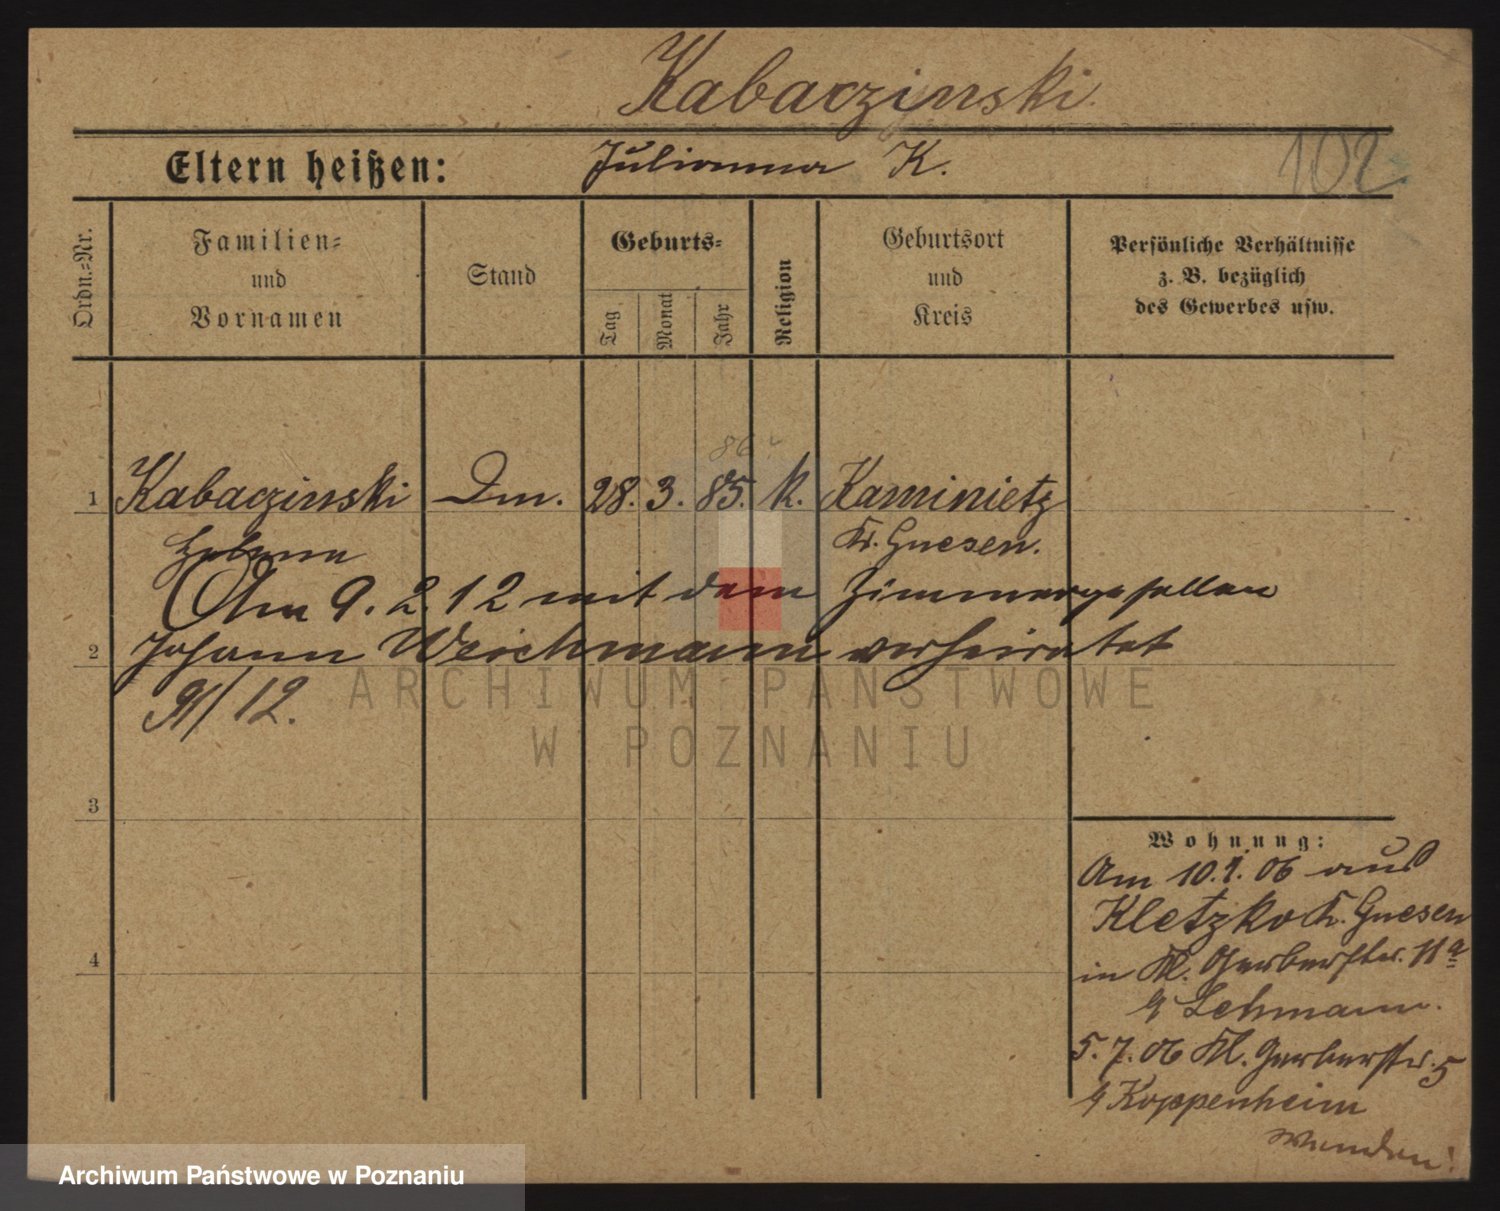 Kabaczinski
Eltern heißen: Julianna K.
102
Ordn.=Nr.
Familien=
und
Vornamen
Stand
Geburts=
Tag
Monat
Jahr
Religion
Geburtsort
und
Kreis
Persönliche Verhältnisse
z. B. bezüglich
des Gewerbes usw.
86
1 Kabaczinski Dm. 28. 3. 85. k. Kaminietz
Helene Kr. Gnesen.
Am 9. 2. 12 mit dem Zimmergesellen
2 Johann Weichmann verheiratet
91/12.
ARCHIWUM PAŃSTWOWE
W POZNANIU
3
4
Wohnung:
Am 10.1.06 aus
Kletzko Kr. Gnesen
in Kl. Gerberstr. 11a
b/ Lehmann.
5.7.06 Kl. Gerberstr. 5
b/ Koppenheim
wenden!
Archiwum Państwowe w Poznaniu